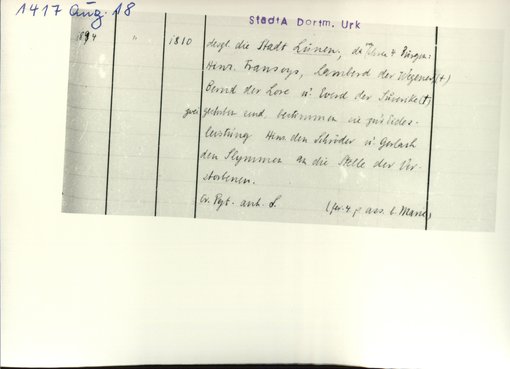 1417 Aug. 18
StadtA Dortm. Urk
1894 " 1810 desgl. die Stadt Lünen, da 4 Bürgen:
Henr. Fransoys, Lambert der Wegener (+)
Bernd der Lore u. Everd der (+)
gestorben sind, bestimmen sie zur Eides-
leistung Henr. den Schröder u. Gerlach
den Slymmen an die Stelle der Ver-
storbenen.
Or. Pgt. anh. S. (fer. 4 p. ass. b. Marie)